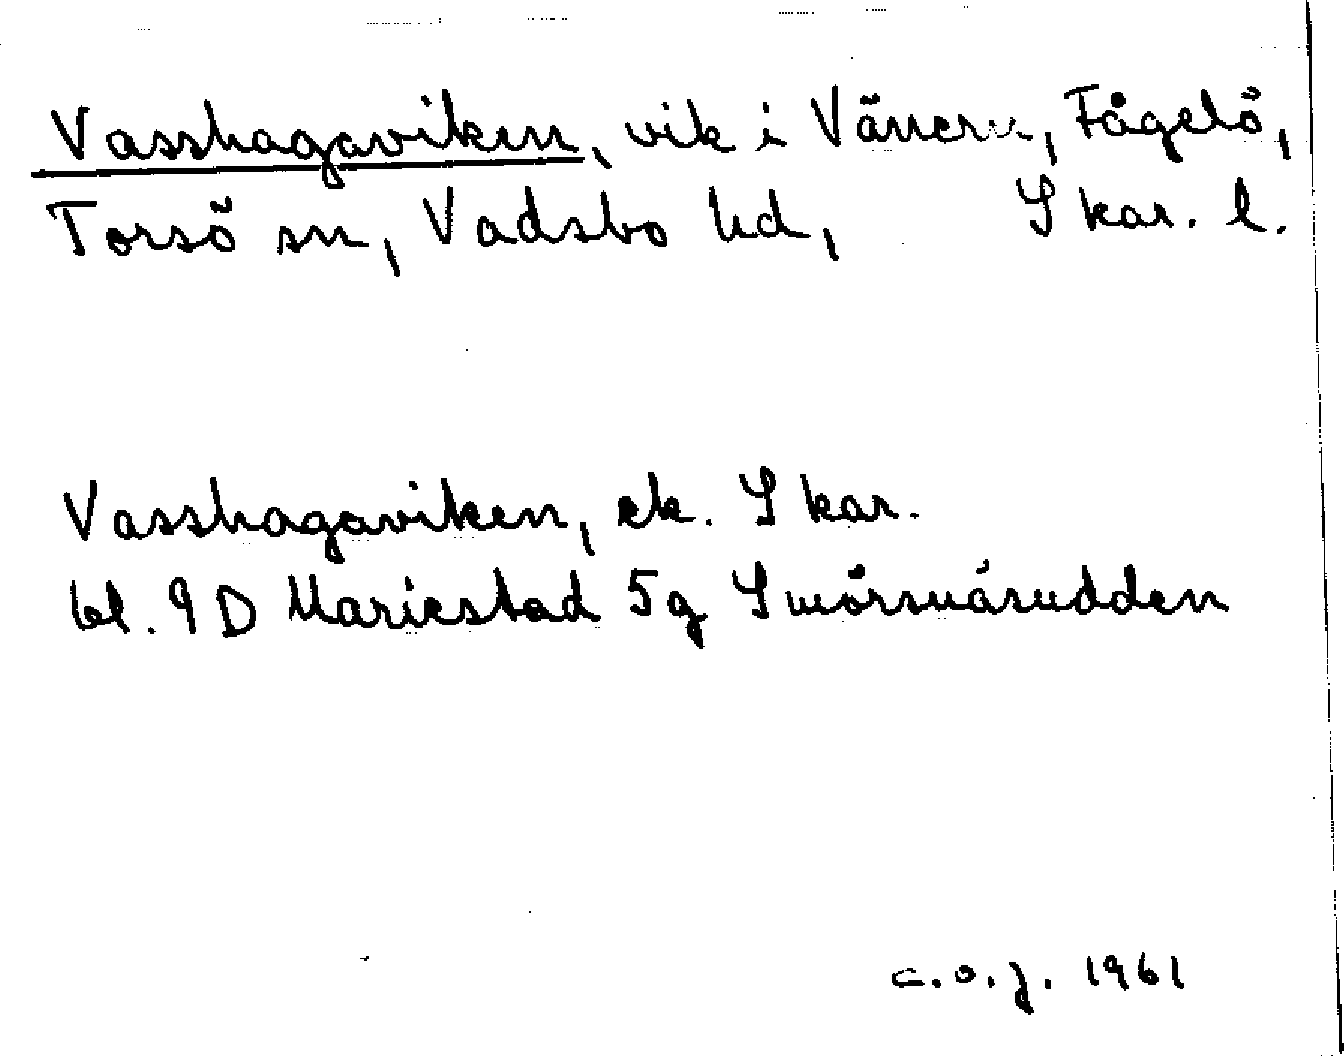 Vasshagaviken, vik i Vänern, Fågelö,
Torsö sn, Vadsbo hd, Skar. l.
Vasshagaviken, ek. Skar.
bl. 9D Mariestad 5g Smörsnåsudden
c.o.j. 1961